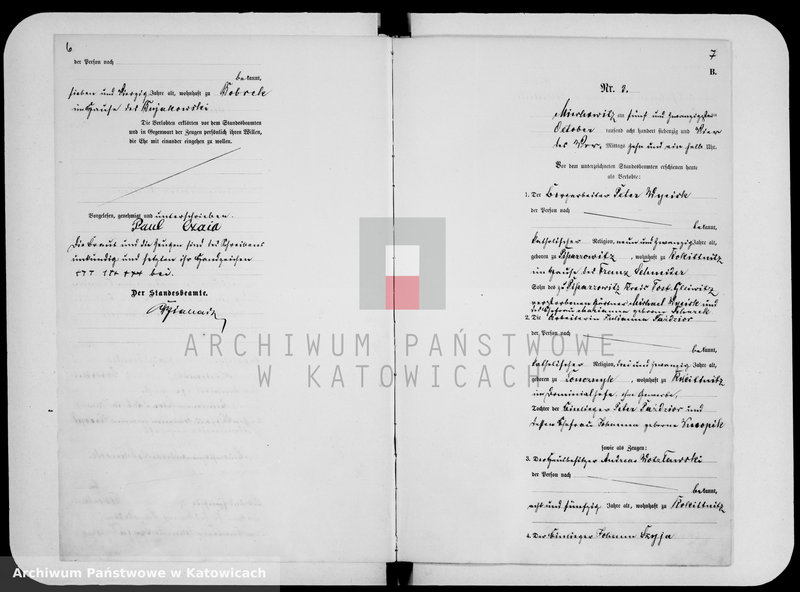 6
der Person nach
bekannt,
sieben und vierzig Jahre alt, wohnhaft zu Bobrek
im Hause des Kujakowski
Die Verlobten erklärten vor dem Standesbeamten
und in Gegenwart der Zeugen persönlich ihren Willen,
die Ehe mit einander eingehen zu wollen.
Vorgelesen, genehmigt und unterschrieben.
Paul Czaia
Die Braut und die Zeugen sind des Schreibens
unkundig und setzten ihr Handzeichen
+++ +++ +++ bei.
Der Standesbeamte.
7
B.
Nr. 2.
Miechowitz am fünf und zwanzigsten
October tausend acht hundert siebenzig und vier
des Vor Mittags zehn und ein halb Uhr.
Vor dem unterzeichneten Standesbeamten erschienen heute
als Verlobte:
1. Der Bergarbeiter Peter
der Person nach
bekannt,
katholischer Religion, neun und zwanzig Jahre alt,
geboren zu Schwarzowitz, wohnhaft zu Rokittnitz
im Hause des Franz Schneider
Sohn des zu Kreis Tost-Gleiwitz
verstorbenen Gärtner Michael und
geborene
2. Die Arbeiterin Julianna Paździor
der Person nach
bekannt,
katholischer Religion, drei und zwanzig Jahre alt,
geboren zu, wohnhaft zu Rokittnitz
im Dominialhofe, ohne Gewerbe,
Tochter der Einlieger Peter Paździor und
dessen Ehefrau Johanna geborene
sowie als Zeugen:
3. Der Andreas
der Person nach
bekannt,
acht und fünfzig Jahre alt, wohnhaft zu Rokittnitz
4. Der Einlieger Johann Szyja
ARCHIWUM PAŃSTWOWE
W KATOWICACH
Archiwum Państwowe w Katowicach